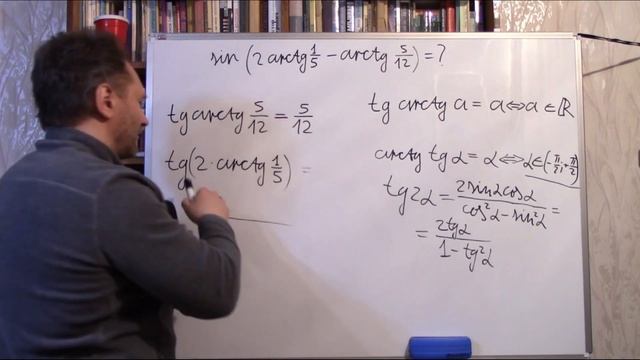 sin (2 arctg 1/5 − arctg 5/12) = ?
tg arctg 5/12 = 5/12
tg(2·arctg 1/5) =
tg arctg a = a ⇔ a ∈ ℝ
arctg tg α = α ⇔ α ∈ (−π/2; π/2)
tg 2α = 2 sin α cos α / cos²α − sin²α =
= 2tg α / 1 − tg²α